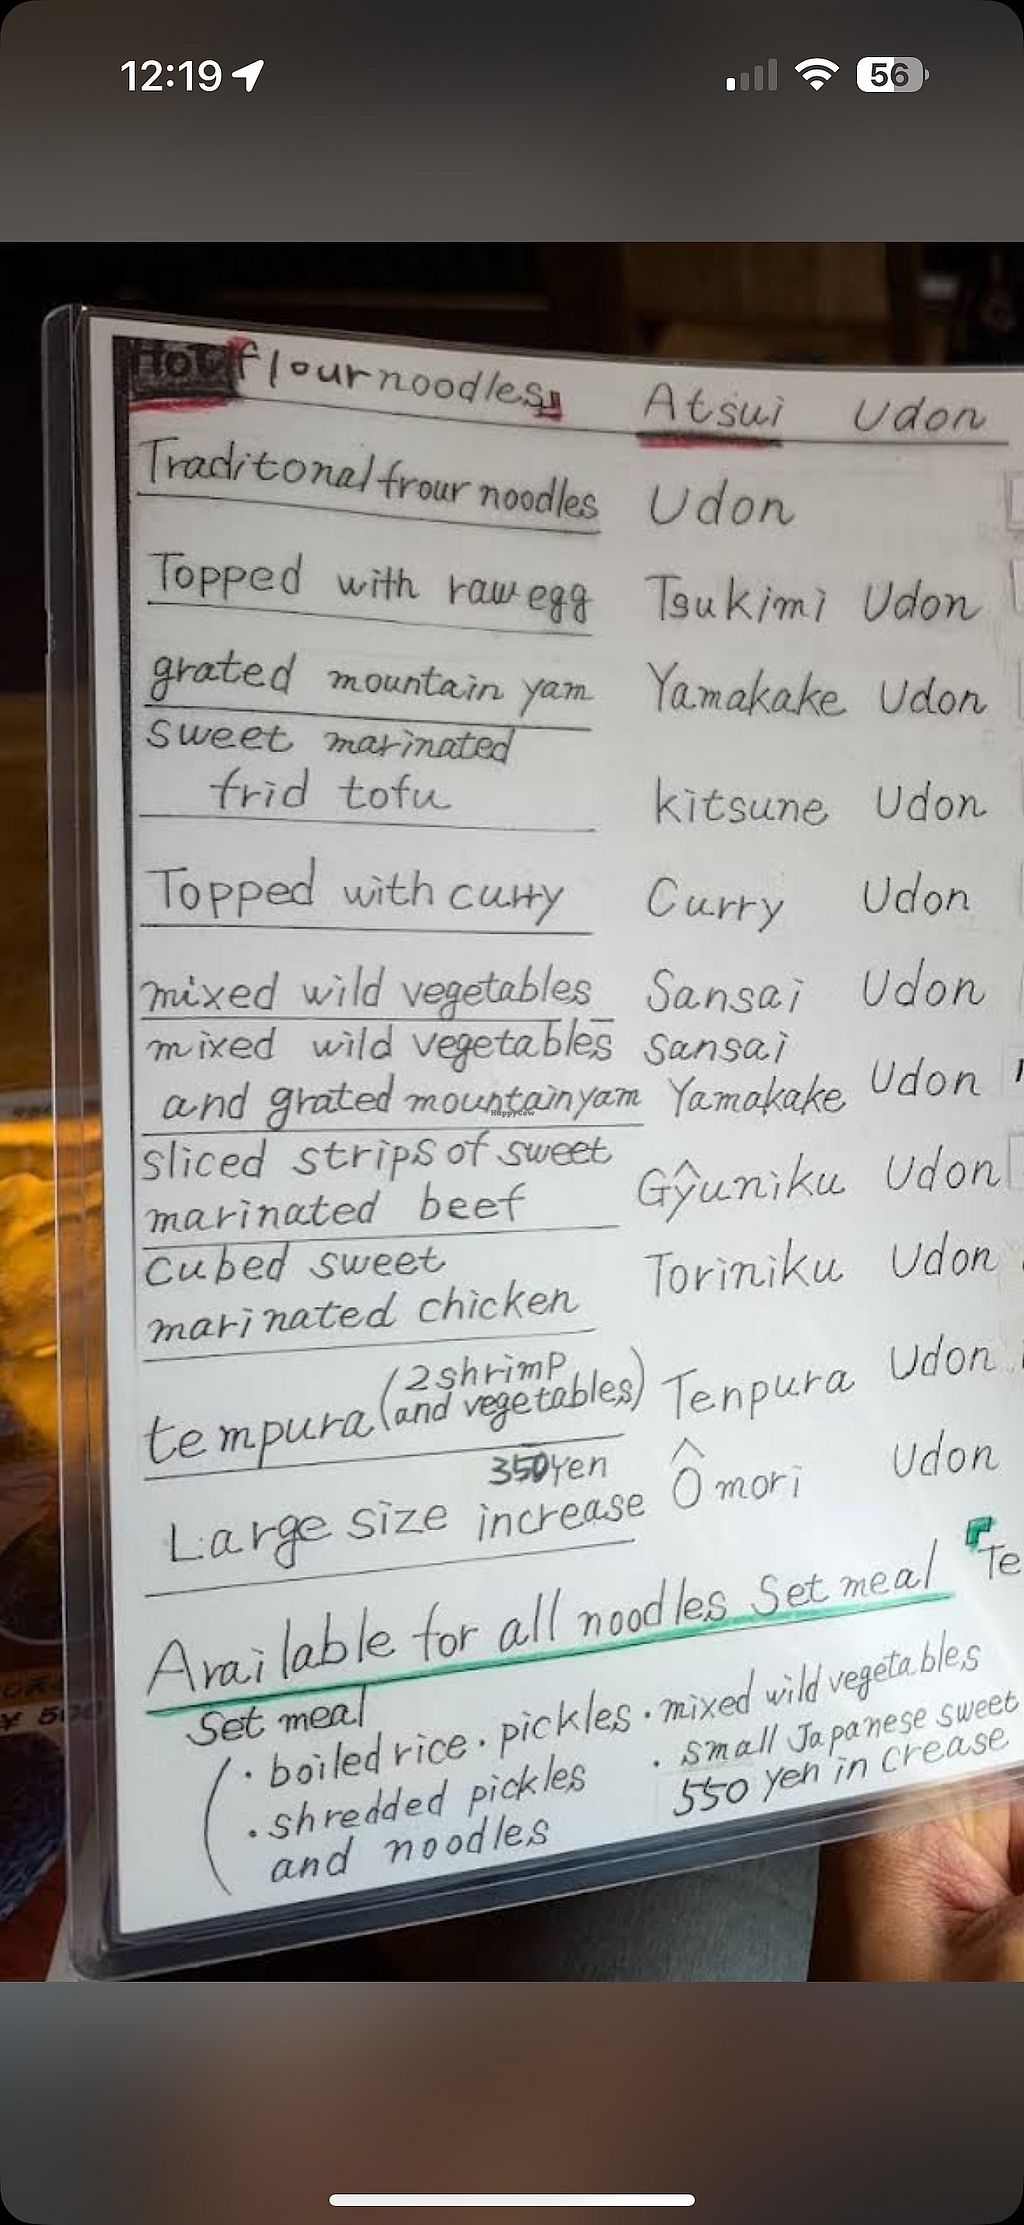 12:19
56
Hot flour noodles Atsui Udon
Traditonal frour noodles Udon
Topped with raw egg Tsukimi Udon
grated mountain yam Yamakake Udon
sweet marinated
frid tofu kitsune Udon
Topped with curry Curry Udon
mixed wild vegetables Sansai Udon
mixed wild vegetables Sansai
and grated mountain yam Yamakake Udon
HappyCow
sliced strips of sweet
marinated beef Gŷuniku Udon
cubed sweet
marinated chicken Toriniku Udon
(2 shrimp
tempura (and vegetables) Tenpura Udon
350 yen
Large size increase Ômori Udon
Available for all noodles Set meal 「Te
Set meal
・boiled rice・pickles・mixed wild vegetables
・shredded pickles ・small Japanese sweet
and noodles 550 yen in crease